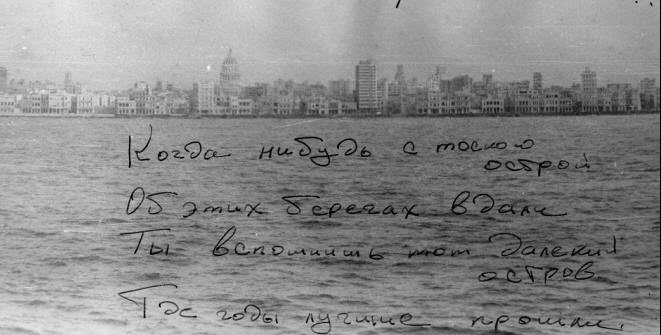 Когда нибудь с тоскою
острой
Об этих берегах вдали
Ты вспомнишь тот далекий
остров
Где годы лучшие прошли.